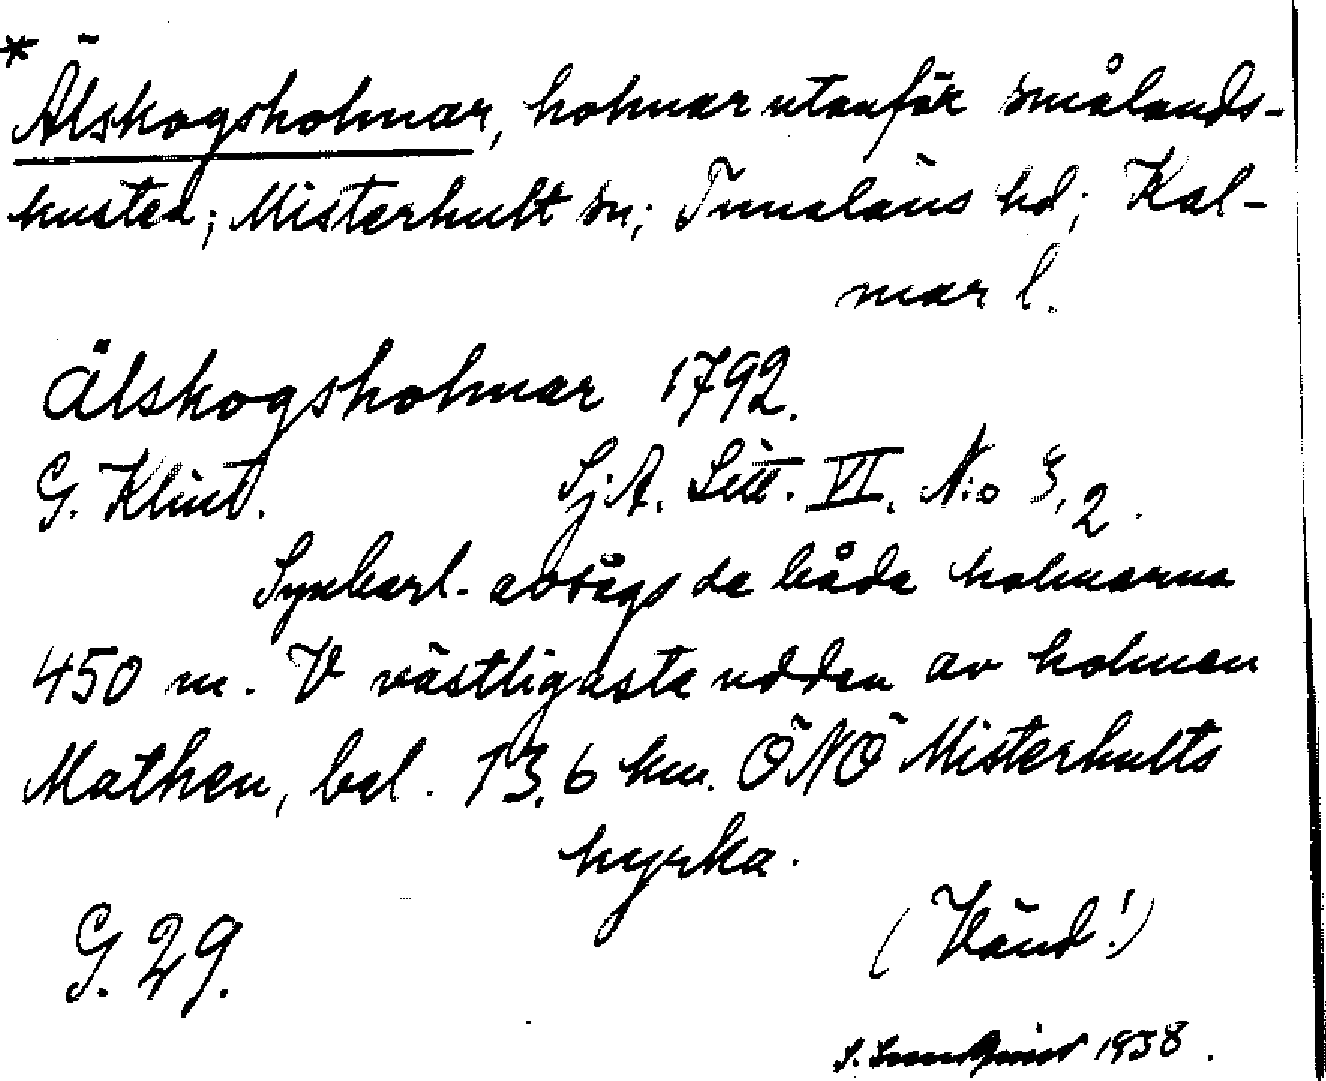 * Älskogsholmar, holmar utanför smålands-
kusten; Misterhult sn; Tunaläns hd; Kal-
mar l.
Älskogsholmar 1792.
G. Klint. SjA. Litt. VI. N:o 3,2.
Synbarl. avsågs de båda holmarna
450 m. V västligaste udden av holmen
Mathen, bel. 13,6 km. ÖNÖ Misterhults
kyrka.
G. 29. (Vänd!)
S. 1938.